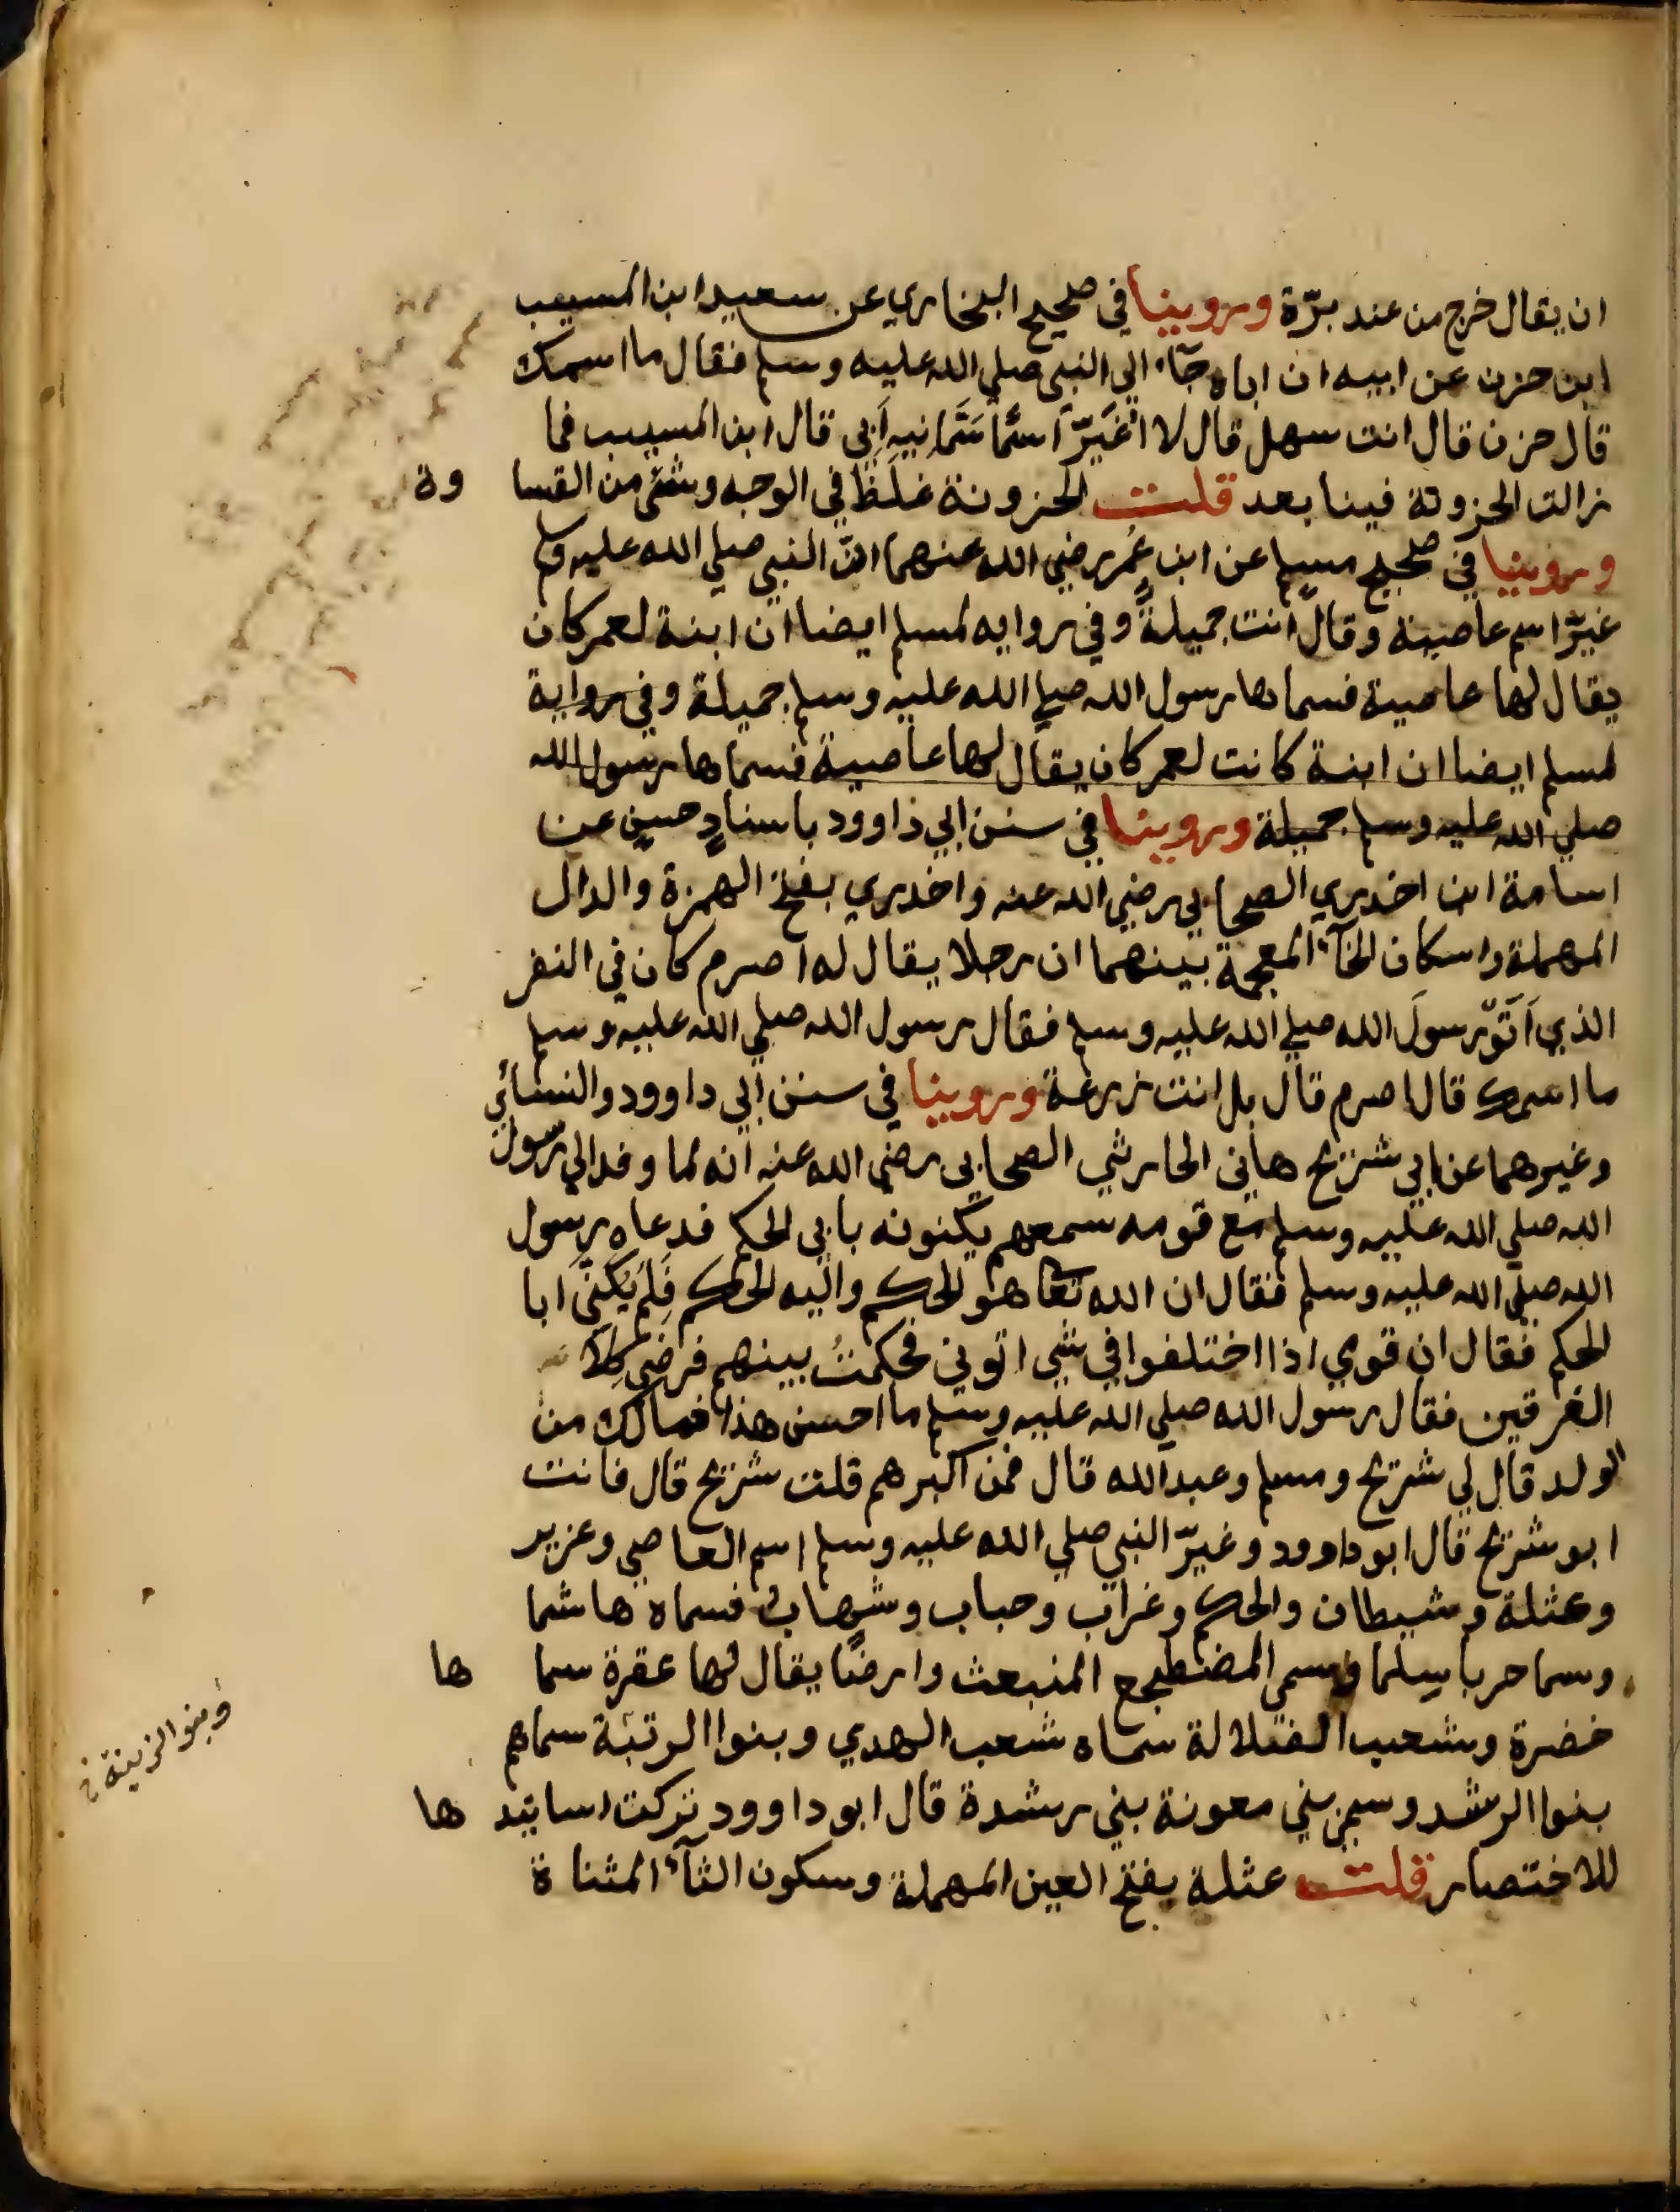 ان يقال خرج من عند برّة وروينا في صحيح البخاري عن سعيد ابن المسيب
ابن حزن عن ابيه ان اباه جآء الي النبي صلي الله عليه وسلم فقال ما اسمك
قال حزن قال انت سهل قال لا اغيّر اسمًا سَمَّانيهِ اَبي قال ابن المسيب فما
زالت الحزونة فينا بعد قلت الحزونة غلظ في الوجه وشئ من القساوة
وروينا في صحيح مسلم عن ابن عُمر رضي الله عنهما انّ النبي صلي الله عليه وسلم
غيّر اسم عاصية وقال انت جميلةٌ وفي روايه لمسلم ايضا ان ابنة لعمر كان
يقال لها عاصية فسماها رسول الله صلي الله عليه وسلم جميلة وفي رواية
لمسلم ايضا ان ابنة كانت لعمر كان يقال لها عاصية فسماها رسول الله
صلي الله عليه وسلم جميلة وروينا في سنن ابي داوود باسنادٍ حسنٍ عن
اسامة ابن اخدري الصحابي رضي الله عنه واخدري بفتح الهمزة والدال
المهملة واسكان الخآء المعجمة بينهما ان رجلا يقال له اصرم كان في النفر
الذي اَتَوّ رسولَ الله صلي الله عليه وسلم فقال رسول الله صلي الله عليه وسلم
ما اسمك قال اصرم قال بل انت زرعة وروينا في سنن ابي داوود والنسائي
وغيرهما عن ابي شريح هاني الحارثي الصحابي رضي الله عنه انه لما وفد الي رسول
الله صلي الله عليه وسلم مع قومه سمعهم يكنونه بابي الحكم فدعاه رسول
الله صلي الله عليه وسلم فقال ان الله تعا هو الحكم واليه الحكم فَلِمَ يُكنّي ابا
الحكم فقال ان قومي اذا اختلفوا في شي اتوني فحكمتُ بينهم فرضي كِلا
الفرقين فقال رسول الله صلي الله عليه وسلم ما احسن هذا فمالك من
الولد قال لي شريح ومسلم وعبد الله قال فمن اكبرهم قلت شريح قال فانت
ابو شريح قال ابو داوود وغيّر النبي صلي الله عليه وسلم اسم العاصي وعزير
وعثلة وشيطان والحكم وغراب وحباب وشهاب فسماه هاشما
وسما حربا سلما وسمي المضطجع المنبعث وارضًا يقال لها عقرة سماها
خضرة وشعب الضلالة سماه شعب الهدي وبنوا الرتبة سماهم
وبنو الزينة خ
بنوا الرشد وسمي بني معونة بني رشدة قال ابو داوود تركت اسانيدها
للاختصار قلت عثلة بفتح العين المهملة وسكون الثآء المثناة